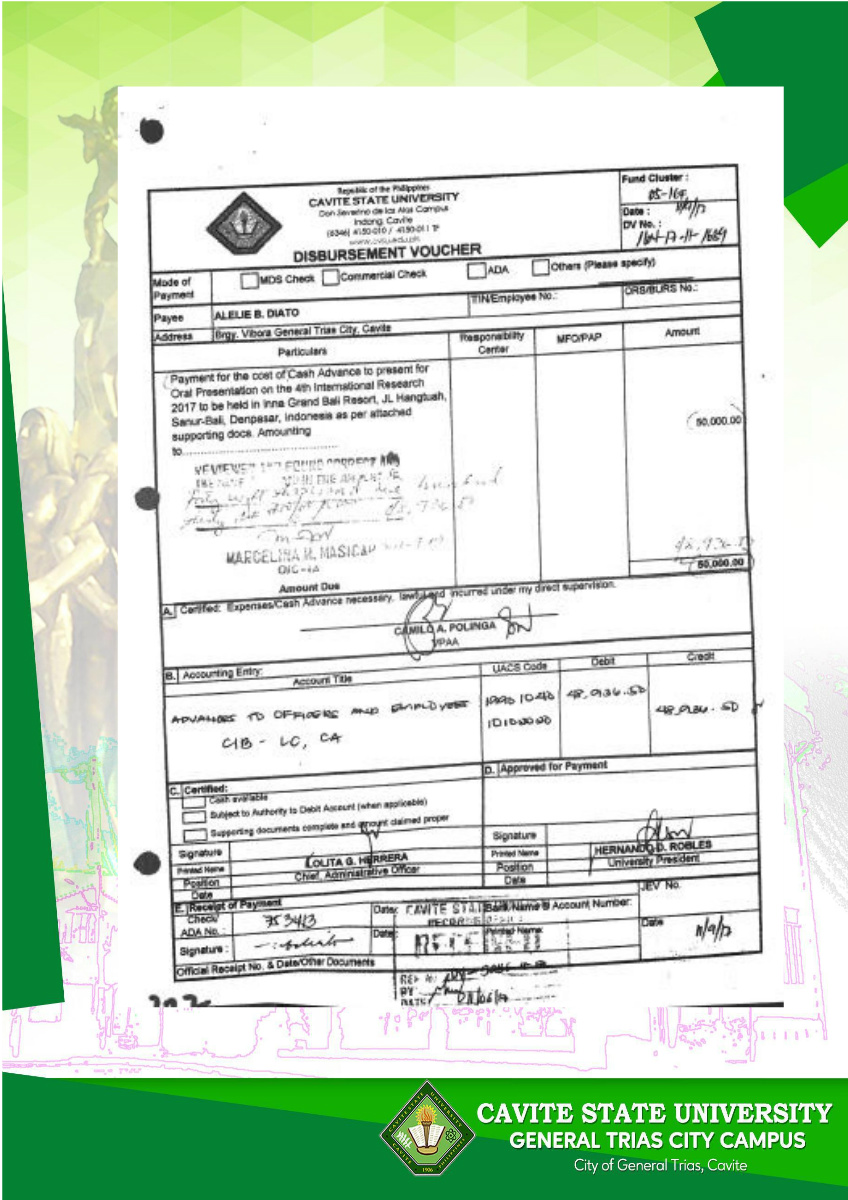 Republic of the Philippines
CAVITE STATE UNIVERSITY
Don Severino de las Alas Campus
Indang, Cavite
www.cvsu.edu.ph
DISBURSEMENT VOUCHER
Fund Cluster :
05-164
Date : 11/9/17
DV No. :
164-17-11-1689
Mode of Payment
MDS Check
Commercial Check
ADA
Others (Please specify)
Payee
ALELIE B. DIATO
TIN/Employee No.:
ORS/BURS No.:
Address
Brgy. Vibora General Trias City, Cavite
Particulars
Responsibility Center
MFO/PAP
Amount
Payment for the cost of Cash Advance to present for
Oral Presentation on the 4th International Research
2017 to be held in Inna Grand Bali Resort, JL Hangtuah,
Sanur-Bali, Denpasar, Indonesia as per attached
supporting docs. Amounting
to....................................
50,000.00
REVIEWED AND FOUND CORRECT
IN THE AMOUNT
48,936.50
MARCELINA M. MASICAP
OIC-IA
48,936.50
Amount Due
50,000.00
A. Certified: Expenses/Cash Advance necessary, lawful and incurred under my direct supervision.
CAMILO A. POLINGA
VPAA
B. Accounting Entry:
Account Title
UACS Code
Debit
Credit
ADVANCES TO OFFICERS AND EMPLOYEES
48,936.50
CIB - LC, CA
48,936.50
C. Certified:
Cash available
Subject to Authority to Debit Account (when applicable)
Supporting documents complete and amount claimed proper
D. Approved for Payment
Signature
Printed Name
LOLITA G. HERRERA
Position
Chief, Administrative Officer
Date
Signature
Printed Name
HERNANDO D. ROBLES
Position
University President
Date
E. Receipt of Payment
JEV No.
Check/
ADA No. :
753413
Date:
Bank Name & Account Number:
Signature :
Date:
Printed Name:
Date
11/9/17
Official Receipt No. & Date/Other Documents
CAVITE STATE
RECORDS
BY
DATE
CAVITE STATE UNIVERSITY
GENERAL TRIAS CITY CAMPUS
City of General Trias, Cavite
CAVITE STATE UNIVERSITY
CAVITE
PHILIPPINES
1906